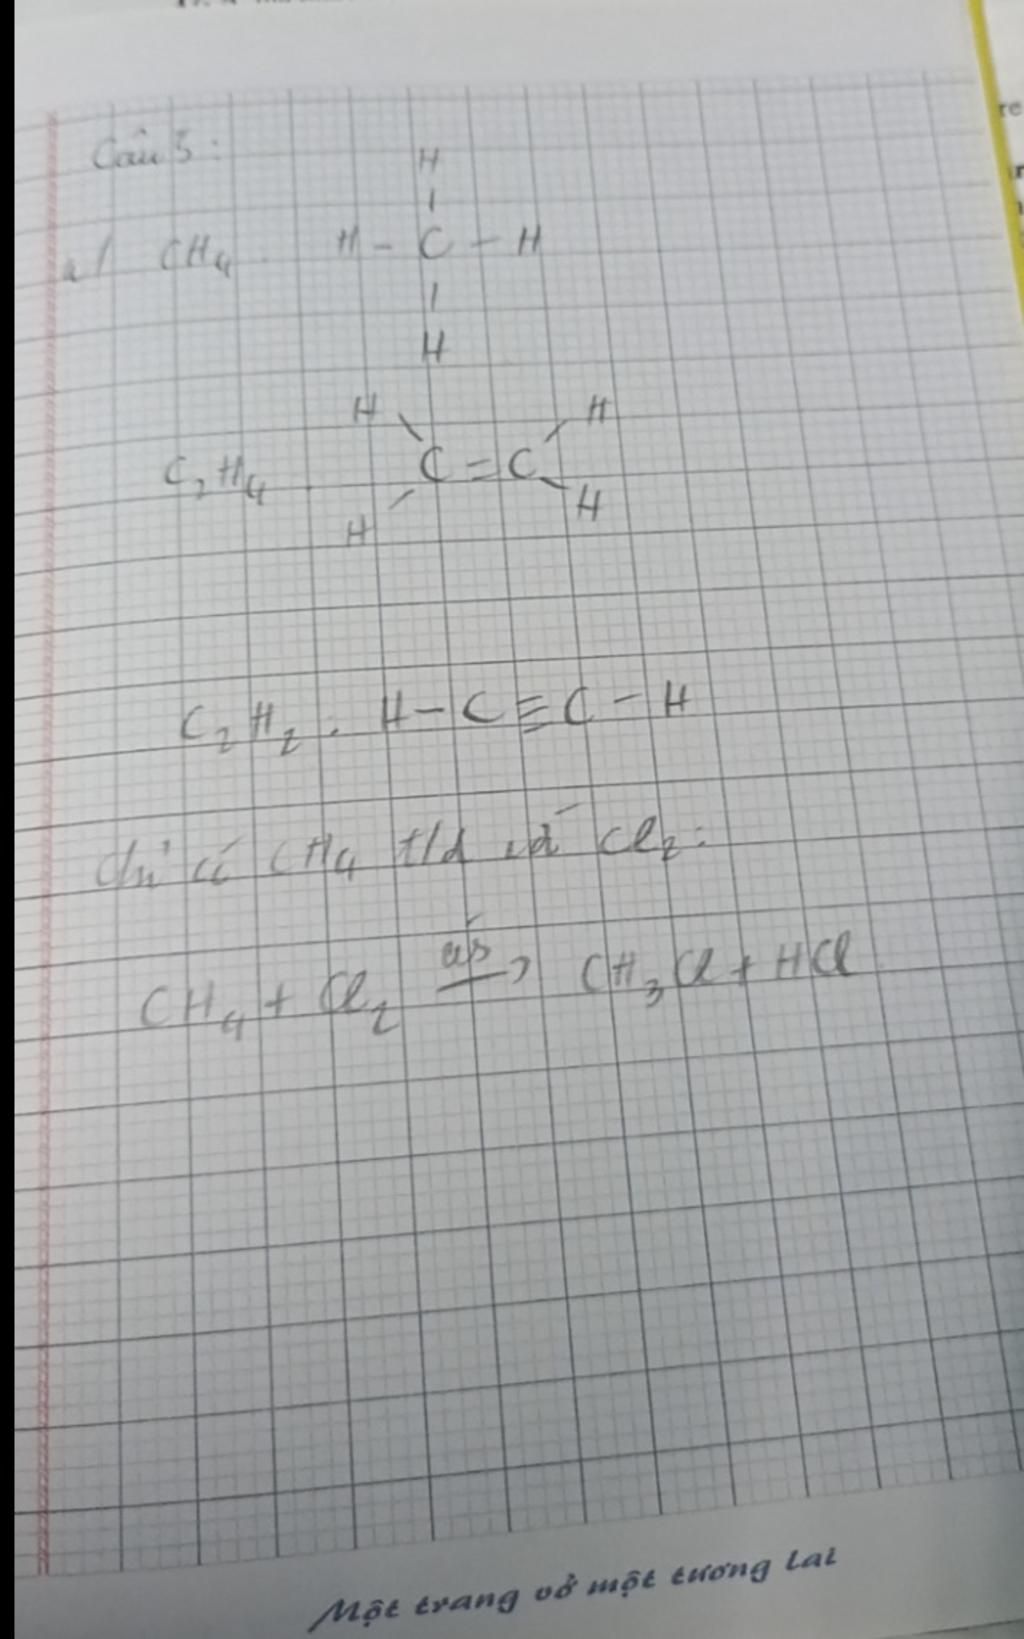 Câu 5:
H
|
a/ CH₄ H - C - H
|
H
H H
\ /
C₂H₄ C = C
/ \
H H
C₂H₂. H - C ≡ C - H
Chỉ có CH₄ t/d với Cl₂:
CH₄ + Cl₂ —as→ CH₃Cl + HCl
Một trang vở một tương lai